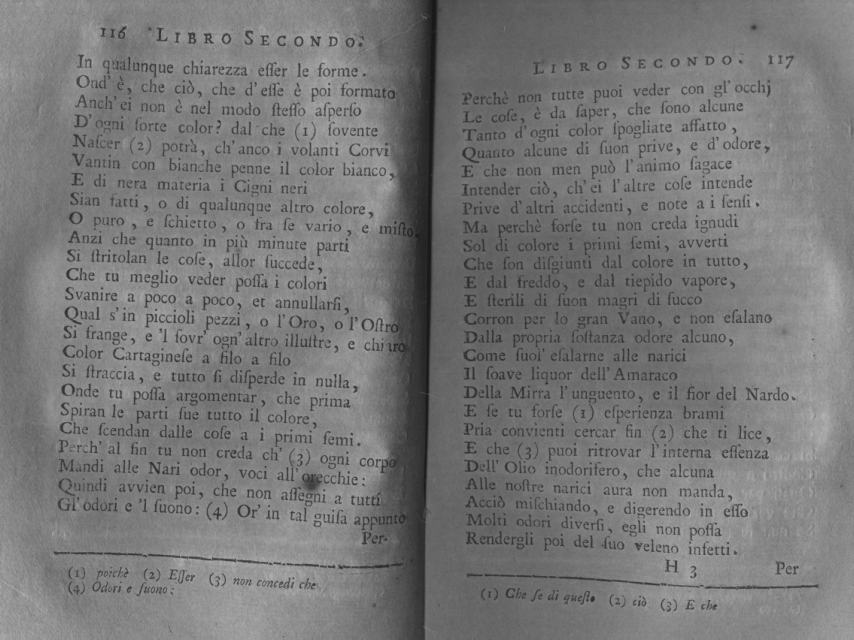 116 LIBRO SECONDO.
In qualunque chiarezza eſſer le forme.
Ond' è, che ciò, che d'eſſe è poi formato
Anch' ei non è nel modo ſteſſo aſperſo
D'ogni ſorte color? dal che (1) ſovente
Naſcer (2) potrà, ch'anco i volanti Corvi
Vantin con bianche penne il color bianco,
E di nera materia i Cigni neri
Sian fatti, o di qualunque altro colore,
O puro, e ſchietto, o fra ſe vario, e miſto.
Anzi che quanto in più minute parti
Si ſtritolan le coſe, allor ſuccede,
Che tu meglio veder poſſa i colori
Svanire a poco a poco, et annullarſi,
Qual s'in piccioli pezzi, o l'Oro, o l'Oſtro
Si frange, e 'l ſovr' ogn' altro illuſtre, e chiaro
Color Cartagineſe a filo a filo
Si ſtraccia, e tutto ſi diſperde in nulla,
Onde tu poſſa argomentar, che prima
Spiran le parti ſue tutto il colore,
Che ſcendan dalle coſe a i primi ſemi.
Perch' al fin tu non creda ch' (3) ogni corpo
Mandi alle Nari odor, voci all'orecchie:
Quindi avvien poi, che non aſſegni a tutti
Gl'odori e 'l ſuono: (4) Or' in tal guiſa appunto
Per-
(1) poichè (2) Eſſer (3) non concedi che
(4) Odori e ſuono:
LIBRO SECONDO. 117
Perchè non tutte puoi veder con gl'occhj
Le coſe, è da ſaper, che ſono alcune
Tanto d'ogni color ſpogliate affatto,
Quanto alcune di ſuon prive, e d'odore,
E che non men può l'animo ſagace
Intender ciò, ch'ei l'altre coſe intende
Prive d'altri accidenti, e note a i ſenſi.
Ma perchè forſe tu non creda ignudi
Sol di colore i primi ſemi, avverti
Che ſon diſgiunti dal colore in tutto,
E dal freddo, e dal tiepido vapore,
E ſterili di ſuon magri di ſucco
Corron per lo gran Vano, e non eſalano
Dalla propria ſoſtanza odore alcuno,
Come ſuol' eſalarne alle narici
Il ſoave liquor dell'Amaraco
Della Mirra l'unguento, e il fior del Nardo.
E ſe tu forſe (1) eſperienza brami
Pria convienti cercar fin (2) che ti lice,
E che (3) puoi ritrovar l'interna eſſenza
Dell' Olio inodorifero, che alcuna
Alle noſtre narici aura non manda,
Acciò miſchiando, e digerendo in eſſo
Molti odori diverſi, egli non poſſa
Rendergli poi del ſuo veleno infetti.
H 3 Per
(1) Che ſe di queſto (2) ciò (3) E che